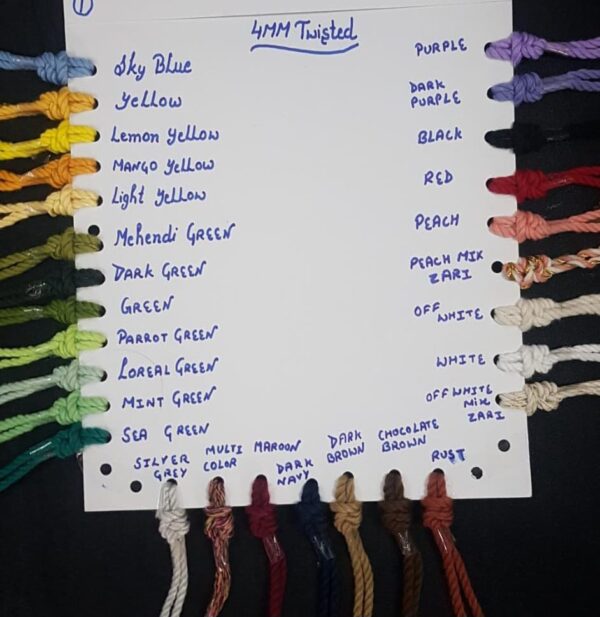 1
4MM Twisted
Sky Blue
Yellow
Lemon Yellow
MANGO Yellow
Light Yellow
Mehendi GREEN
DARK GREEN
GREEN
PARROT GREEN
LOREAL GREEN
MINT GREEN
SEA GREEN
PURPLE
DARK
PURPLE
BLACK
RED
PEACH
PEACH MIX
ZARI
OFF
WHITE
WHITE
OFF WHITE
MIX
ZARI
SILVER
GREY
MULTI
COLOR
MAROON
DARK
NAVY
DARK
BROWN
CHOCOLATE
BROWN
RUST